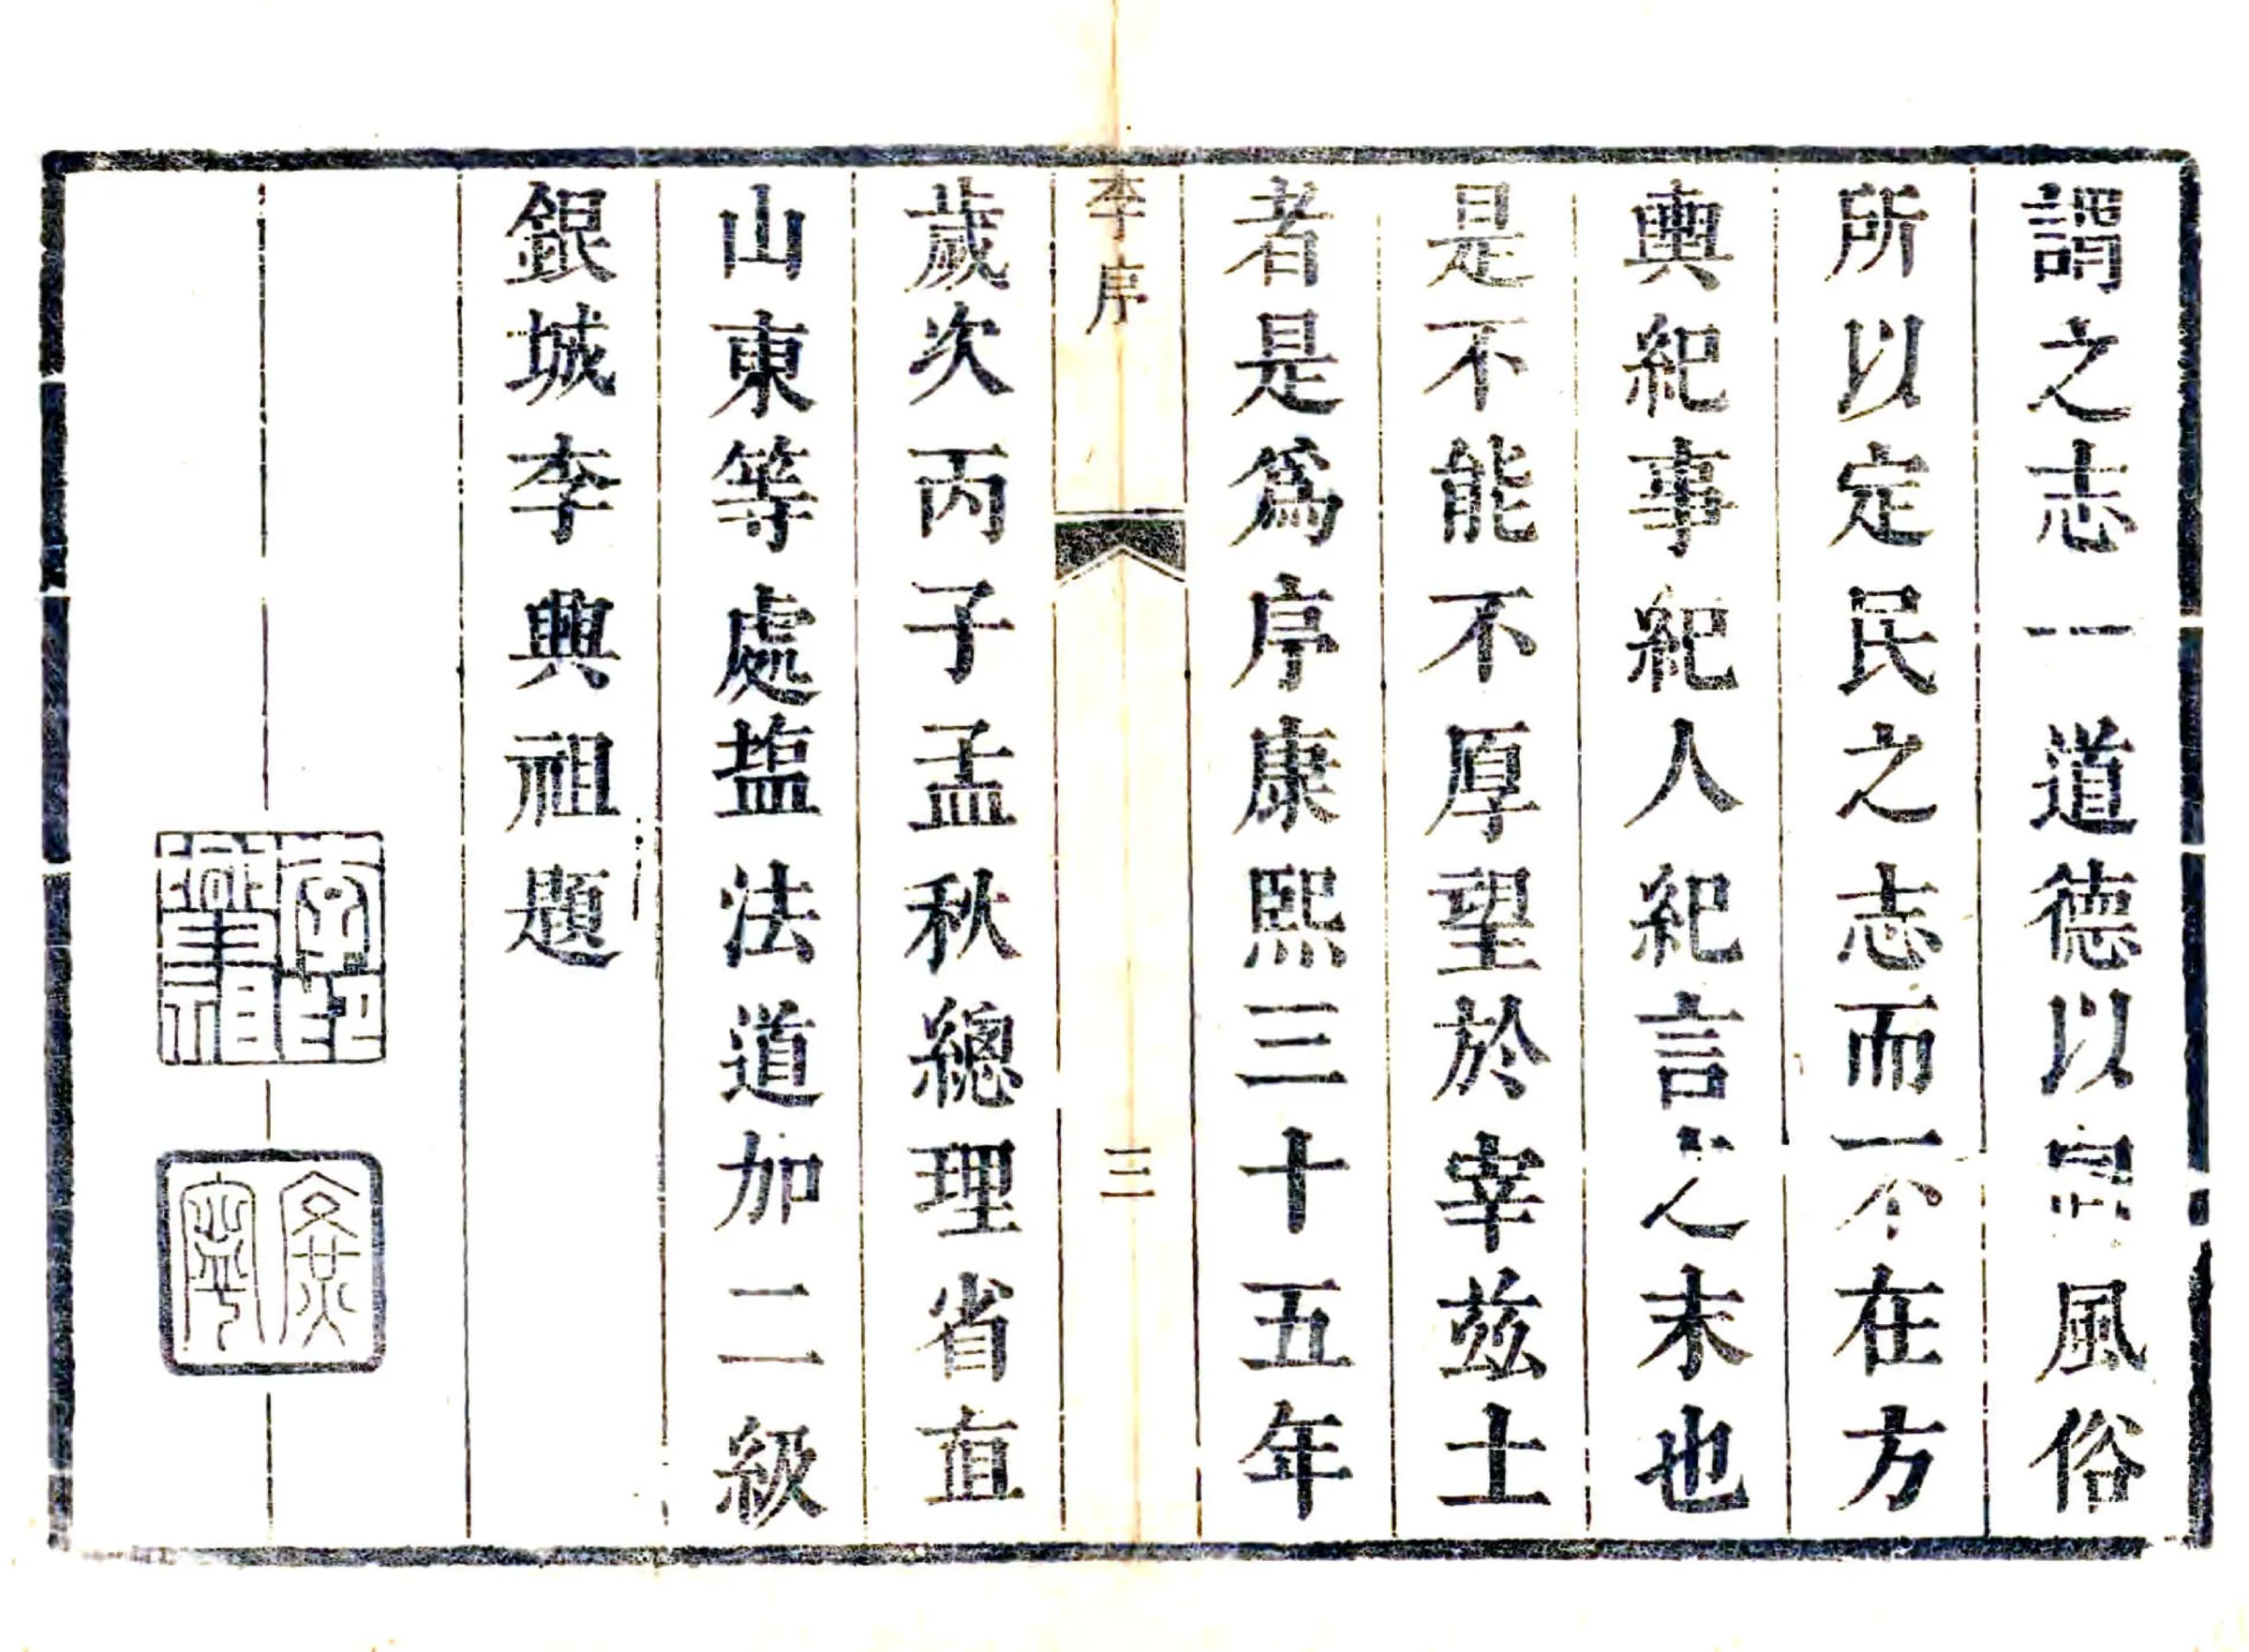 謂之志一道德以風俗
所以定民之志而不在方
輿紀事紀人紀言之末也
是不能不厚望於宰茲土
者是爲序康熙三十五年
李序
三
歲次丙子孟秋總理省直
山東等處塩法道加二級
銀城李興祖題
李印
興祖